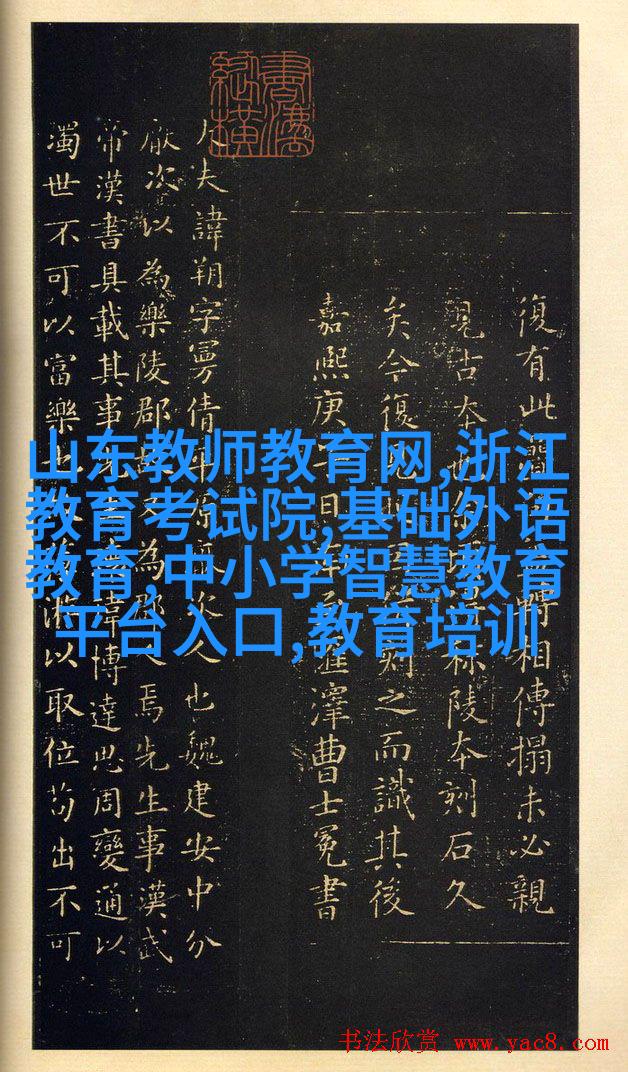 復有此轉相傳搨未必親
見古本秣陵本刻石久
矣今復見則之而識其後
嘉熙庚日澤曹士冕書
大夫諱朔字曼倩平原厭次人也魏建安中分
厥次以為樂陵郡又為郡人焉先生事漢武
帝漢書具載其事瑋博達思周變通以
濁世不可以富樂也以取位苟出不可
山东教师教育网,浙江
教育考试院,基础外语
教育,中小学智慧教育
平台入口,教育培训
书法欣赏 www.yac8.com